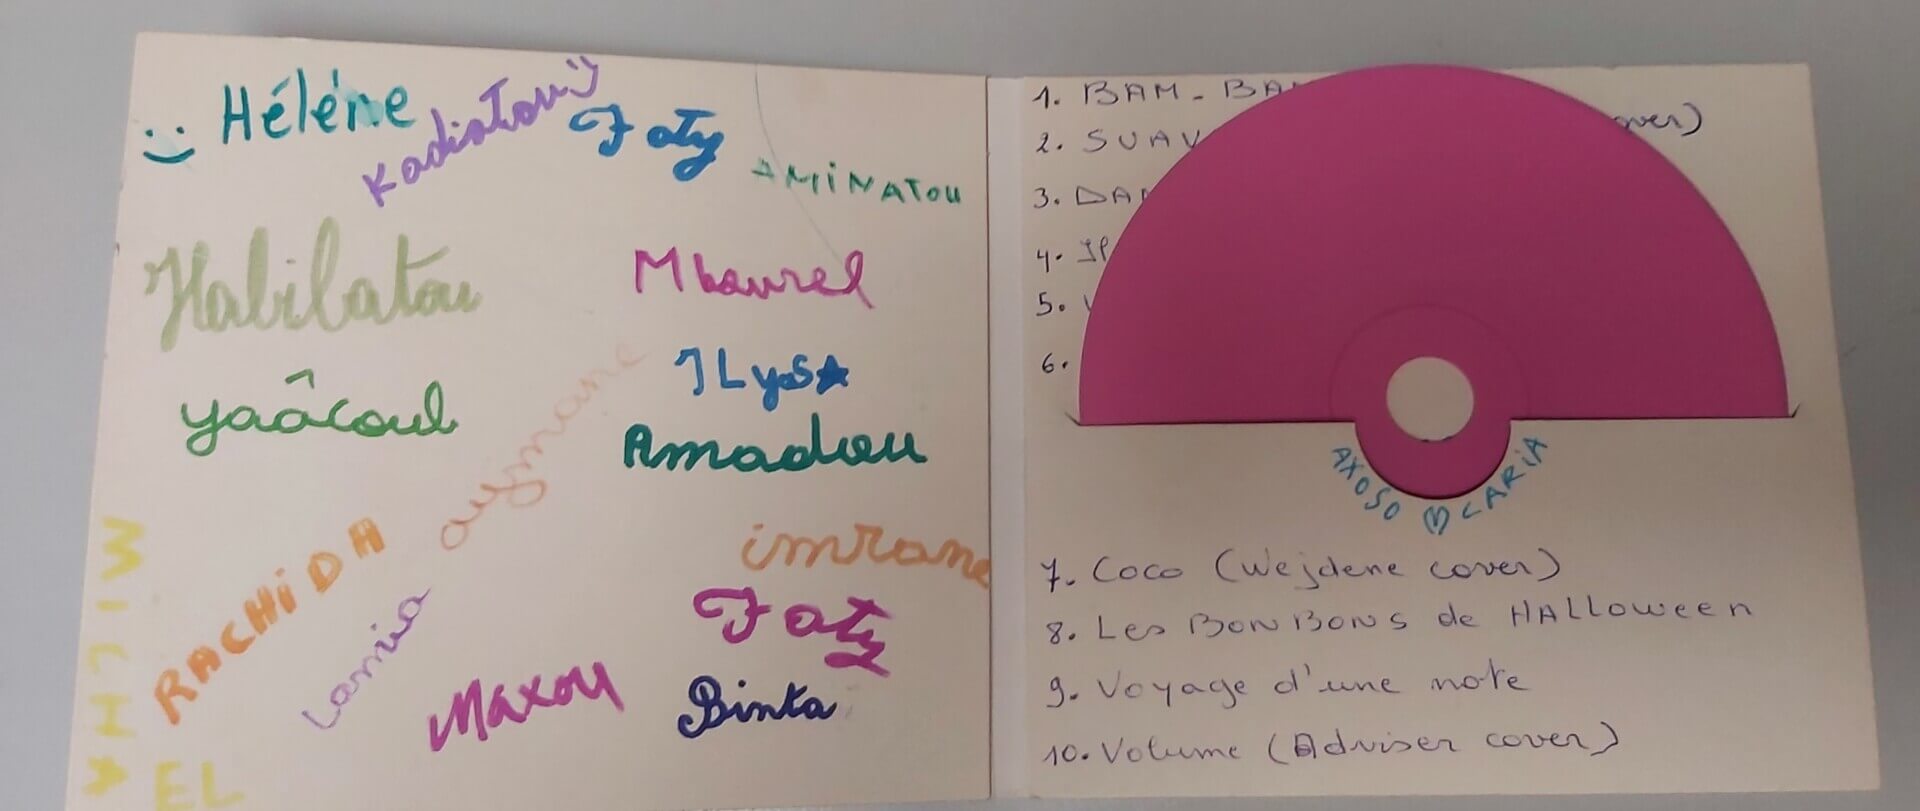 Hélène
Kadiatou
Faty
AMiNATOU
Habilatou
Mbourel
ILyas
yaâcoub
Amadou
aymane
imrane
RACHiDA
Lamia
Faty
Maxou
Binta
MICHA
EL
1. BAM-BA
2. SUAV
over)
3. DA
4.
5.
6.
AXOSO CARiA
7. Coco (Wejdene cover)
8. Les BONBONS de HALLOWEEN
9. Voyage d'une note
10. Volume (Adviser cover)